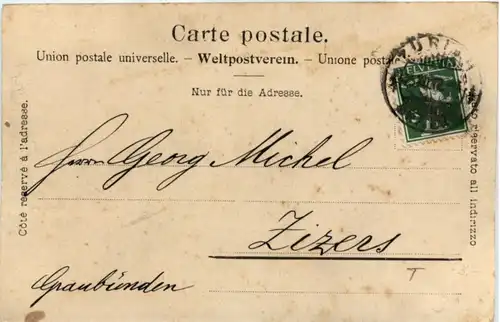 Carte postale.
Union postale universelle. – Weltpostverein. – Unione postale
Nur für die Adresse.
Côté reservé à l'adresse.
riservato all indirizzo
ZÜRICH
HELVETIA
Herrn Georg Michel
Zizers
Graubünden
T